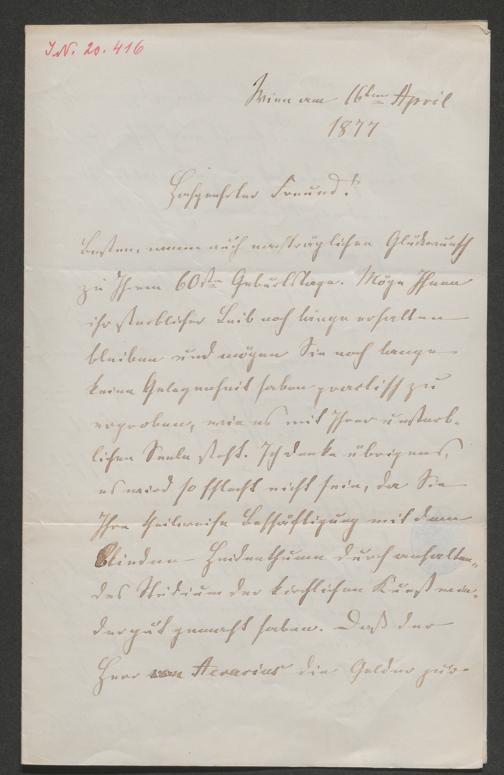 I.N. 20.416
Wien am 16ten April
1877
Hochgeehrter Freund!
Besten, wenn auch nachträglichen Glückwunsch
zu Ihrem 60sten Geburtstage. Möge Ihnen
ihr sterblicher Leib noch lange erhalten
bleiben und mögen Sie noch lange
keine Gelegenheit haben practisch zu
erproben, wie es mit Ihrer unsterb-
lichen Seele steht. Ich denke übrigens,
es wird so schlecht nicht sein, da Sie
Ihre theilweise Beschäftigung mit dem
blinden Heidenthume durch anhalten-
des Studium der kirchlichen Kunst wie-
der gut gemacht haben. Daß der
Herr Aerarius die Gelder